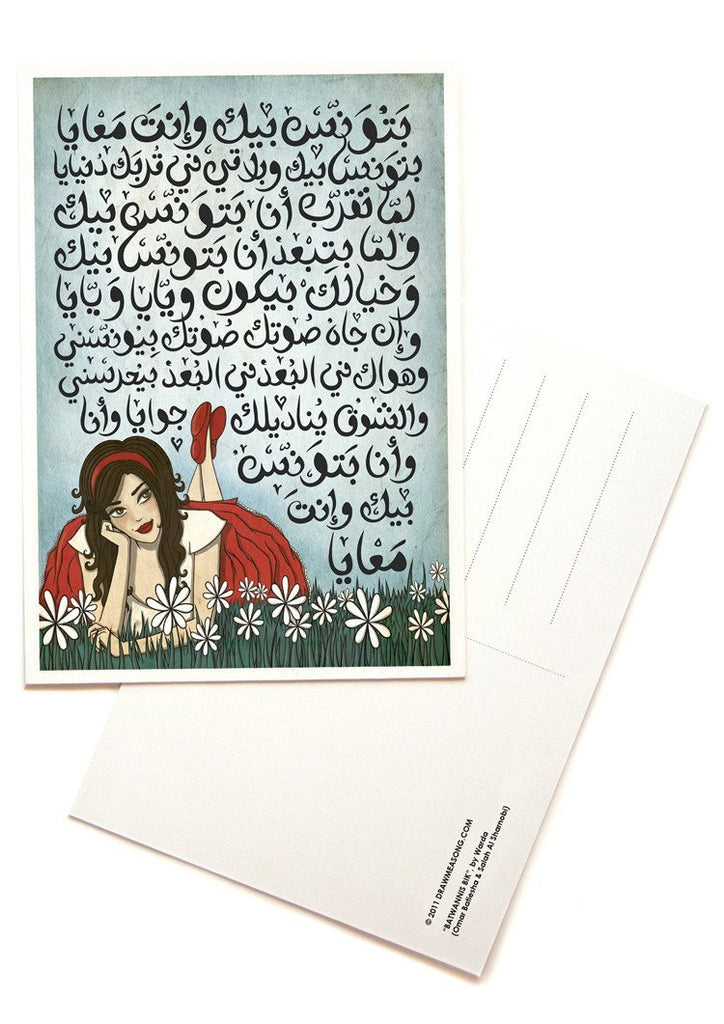 بَتْوَنِّسْ بيك وإنتَ مَعايا
بتوَنِّس بيك وبلاقي في قُربَك دُنيايا
لمّا تقرّب أنا بَتوَنِّسْ بيك
ولمّا بتبعد أنا بَتونِّسْ بيك
وَخيالك بيكون ويّايا ويّايا ويّايا
وإن جاه صُوتك صُوتك بيونسّني
وهواك في البُعد في البُعد بيحرسني
والشوق يُناديلك جوايا وأنا
وأنا بَتونِّسْ
بيك وإنتَ
مَعايا
© 2011 DRAWMEASONG.COM
"BATWANNIS BIK", by Warda
(Omar Batiesha & Salah Al Sharnobi)